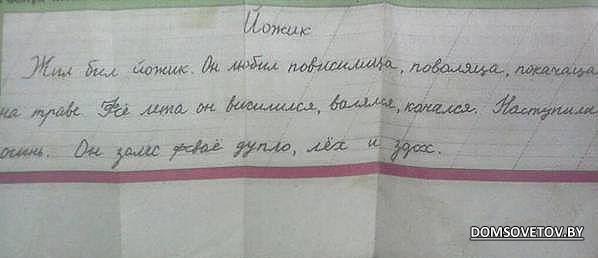 Йожик
Жил был йожик. Он любил повисилица, поваляца, покачаца
на траве. Fсё лета он висилился, валялся, качался. Наступила
осинь. Он залес fсваё дупло, лёх и здох.
DOMSOVETOV.BY